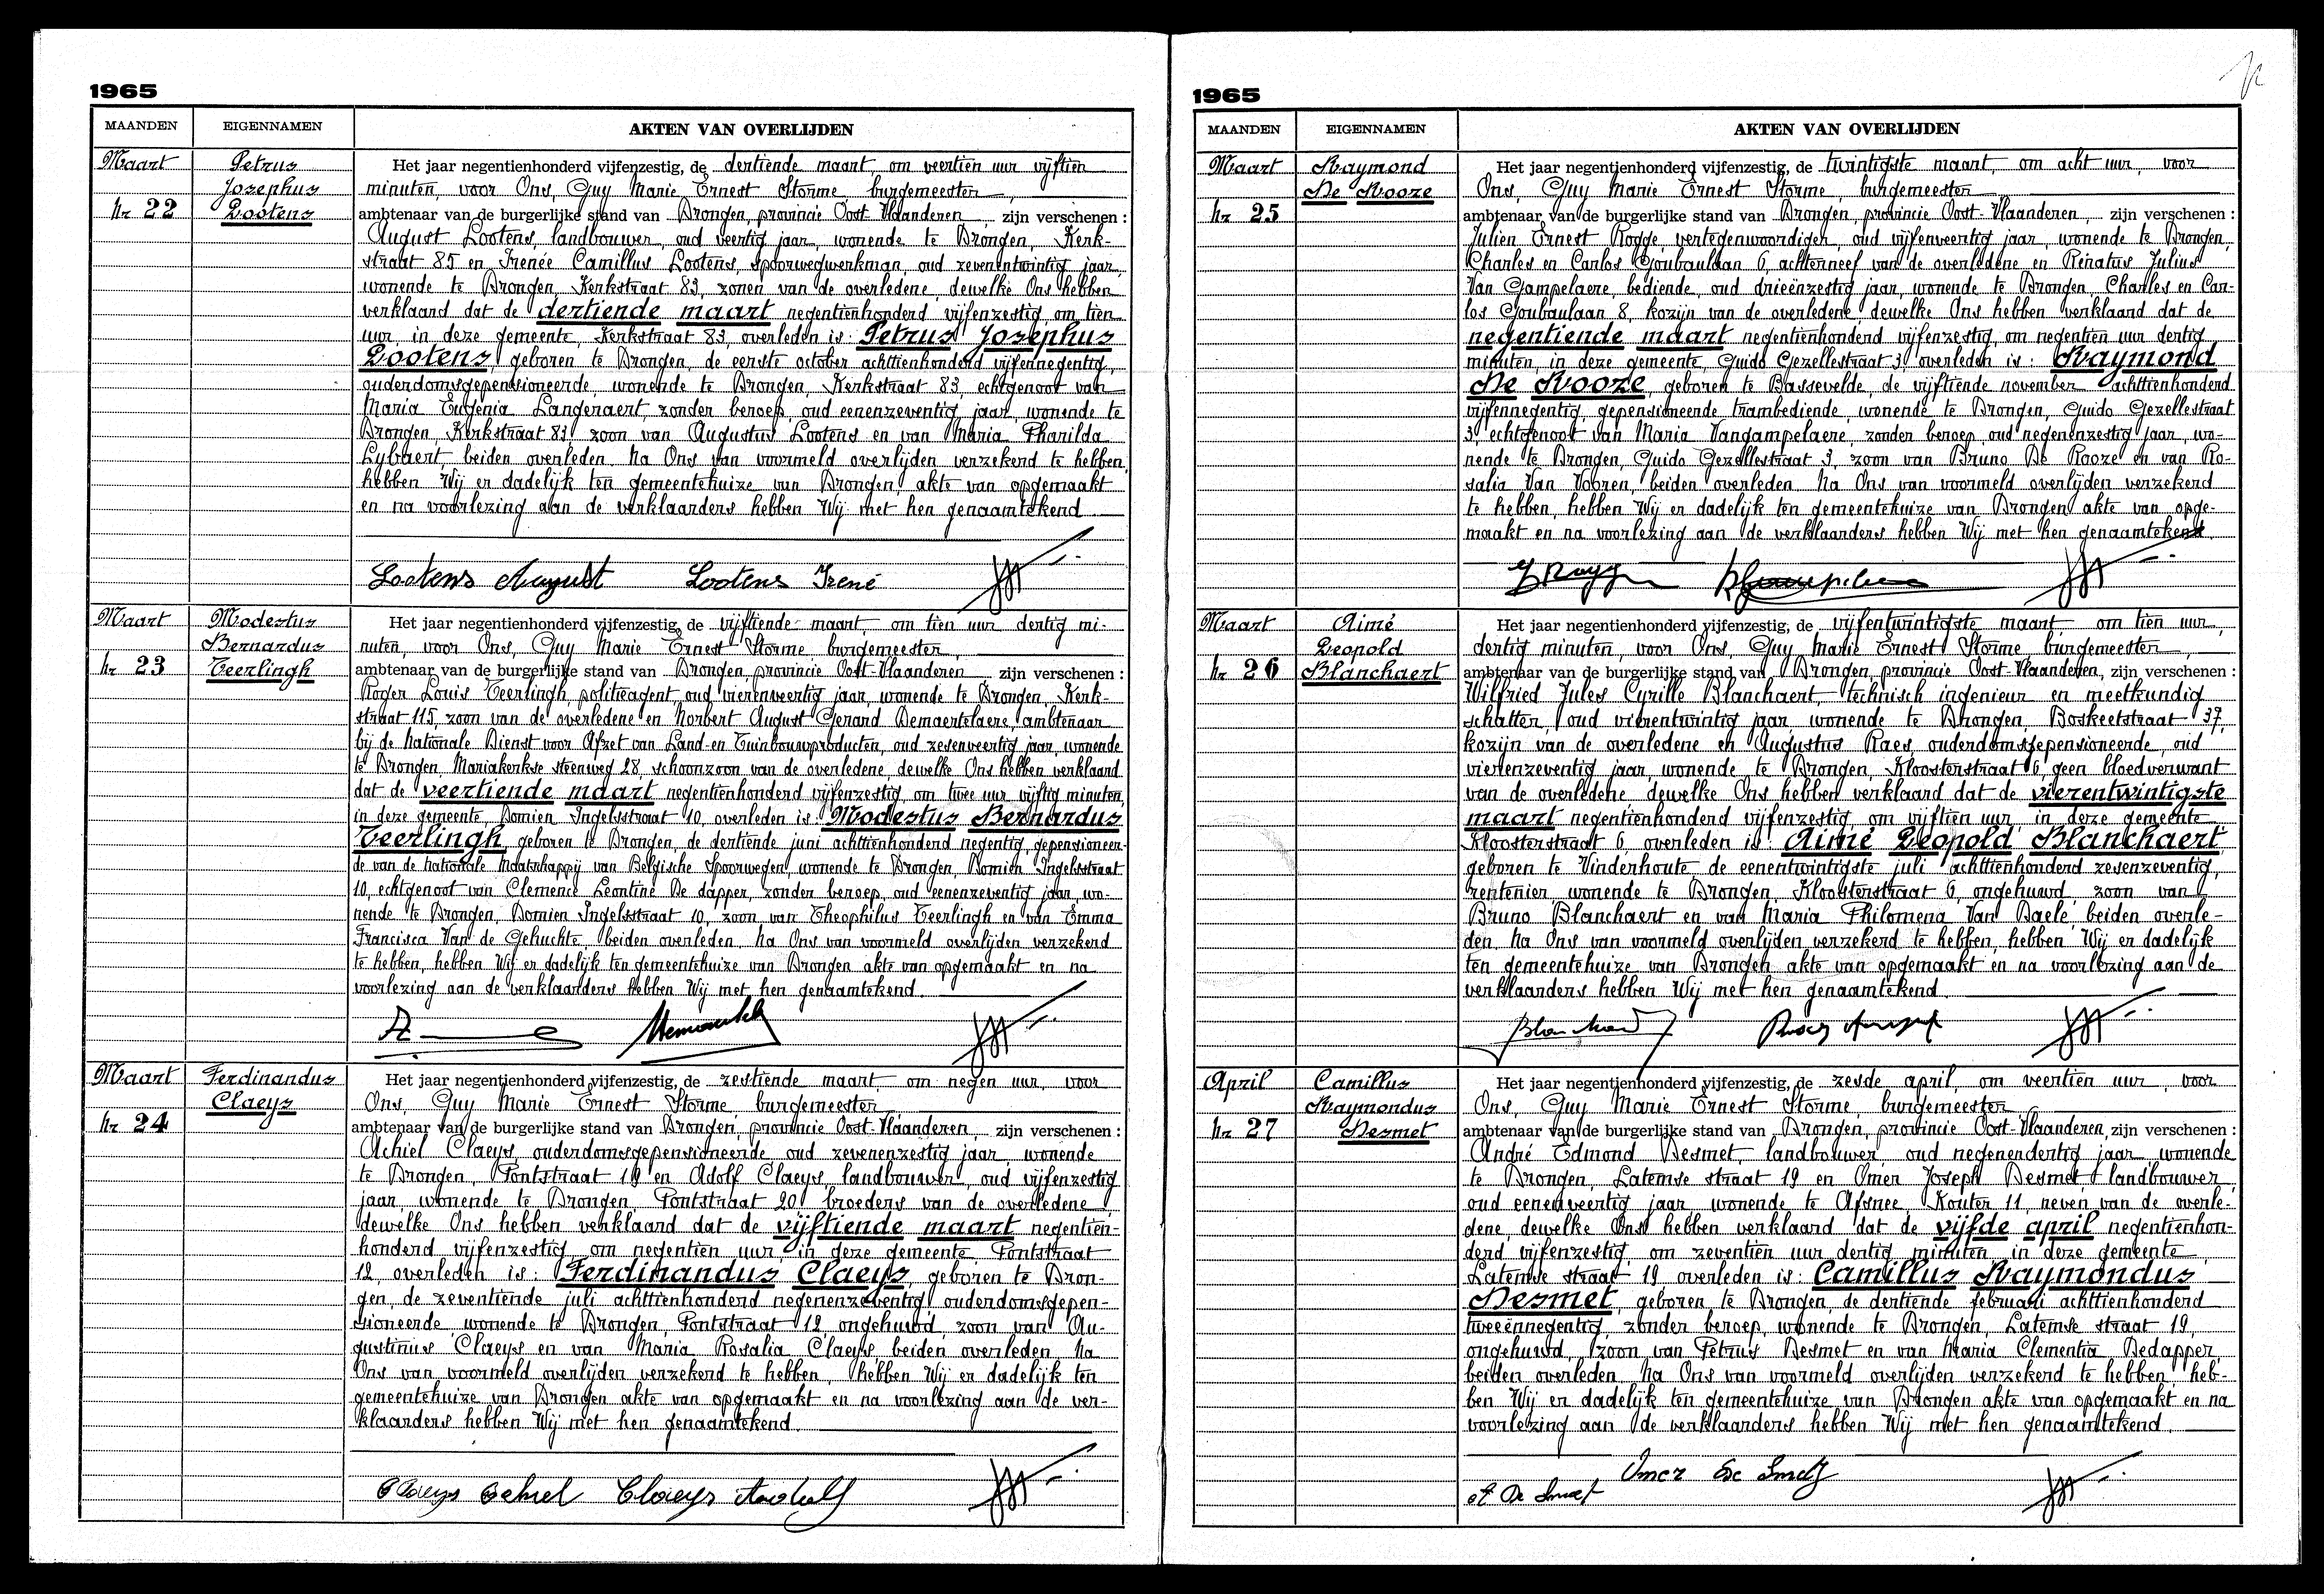 1965
MAANDEN EIGENNAMEN AKTEN VAN OVERLIJDEN
Maart
Nr 22
Petrus
Josephus
Lootens
Het jaar negentienhonderd vijfenzestig, de dertiende maart, om veertien uur vijftien
minuten, voor Ons, Guy Marie Ernest Storme, burgemeester,
ambtenaar van de burgerlijke stand van Drongen, provincie Oost-Vlaanderen, zijn verschenen :
August Lootens, landbouwer, oud veertig jaar, wonende te Drongen, Kerk-
straat 85 en Irenée Camillus Lootens, spoorwegwerkman, oud zevenentwintig jaar,
wonende te Drongen, Kerkstraat 83, zonen van de overledene, dewelke Ons hebben
verklaard dat de dertiende maart negentienhonderd vijfenzestig, om tien
uur, in deze gemeente, Kerkstraat 83, overleden is: Petrus Josephus
Lootens, geboren te Drongen, de eerste october achttienhonderd vijfennegentig,
ouderdomsgepensioneerde, wonende te Drongen, Kerkstraat 83, echtgenoot van
Maria Eugenia Langeraert, zonder beroep, oud eenenzeventig jaar, wonende te
Drongen, Kerkstraat 83, zoon van Augustus Lootens en van Maria Pharilda
Lybaert, beiden overleden. Na Ons van voormeld overlijden verzekerd te hebben,
hebben Wij er dadelijk ten gemeentehuize van Drongen, akte van opgemaakt
en na voorlezing aan de verklaarders hebben Wij met hen genaamtekend
Lootens August Lootens Irené
Maart
Nr 23
Modestus
Bernardus
Teerlingh
Het jaar negentienhonderd vijfenzestig, de vijftiende maart, om tien uur dertig mi-
nuten, voor Ons, Guy Marie Ernest Storme burgemeester,
ambtenaar van de burgerlijke stand van Drongen, provincie Oost-Vlaanderen, zijn verschenen :
Roger Louis Teerlingh, politieagent, oud vierenveertig jaar, wonende te Drongen, Kerk-
straat 115, zoon van de overledene en Norbert August Gerard Demaertelaere, ambtenaar
bij de Nationale Dienst voor Afzet van Land-en Tuinbouwproducten, oud zesenveertig jaar, wonende
te Drongen, Mariakerkse steenweg 28, schoonzoon van de overledene, dewelke Ons hebben verklaard
dat de veertiende maart negentienhonderd vijfenzestig, om twee uur vijftig minuten,
in deze gemeente, Domien Ingelsstraat 10, overleden is: Modestus Bernardus
Teerlingh, geboren te Drongen, de dertiende juni achttienhonderd negentig, gepensioneer-
de van de Nationale Maatschappij van Belgische Spoorwegen, wonende te Drongen, Domien Ingelsstraat
10, echtgenoot van Clemence Leontine De dapper, zonder beroep, oud eenenzeventig jaar, wo-
nende te Drongen, Domien Ingelsstraat 10, zoon van Theophilus Teerlingh en van Emma
Francisca Van de Gehuchte, beiden overleden. Na Ons van voormeld overlijden verzekerd
te hebben, hebben Wij er dadelijk ten gemeentehuize van Drongen akte van opgemaakt en na
voorlezing aan de verklaarders hebben Wij met hen genaamtekend.
Maart
Nr 24
Ferdinandus
Claeys
Het jaar negentienhonderd vijfenzestig, de zestiende maart, om negen uur, voor
Ons, Guy Marie Ernest Storme, burgemeester,
ambtenaar van de burgerlijke stand van Drongen, provincie Oost-Vlaanderen, zijn verschenen :
Achiel Claeys, ouderdomsgepensioneerde, oud zevenenzestig jaar, wonende
te Drongen, Pontstraat 19 en Adolf Claeys, landbouwer, oud vijfenzestig
jaar, wonende te Drongen, Pontstraat 20, broeders van de overledene,
dewelke Ons hebben verklaard dat de vijftiende maart negentien-
honderd vijfenzestig, om negentien uur, in deze gemeente, Pontstraat
12, overleden is: Ferdinandus Claeys, geboren te Dron-
gen, de zeventiende juli achttienhonderd negenenzeventig, ouderdomsgepen-
sioneerde, wonende te Drongen, Pontstraat 12, ongehuwd, zoon van Au-
gustinus Claeys en van Maria Rosalia Claeys, beiden overleden. Na
Ons van voormeld overlijden verzekerd te hebben, hebben Wij er dadelijk ten
gemeentehuize van Drongen akte van opgemaakt en na voorlezing aan de ver-
klaarders hebben Wij met hen genaamtekend.
Claeys Achiel Claeys Adolf
1965
MAANDEN EIGENNAMEN AKTEN VAN OVERLIJDEN
Maart
Nr 25
Raymond
De Rooze
Het jaar negentienhonderd vijfenzestig, de twintigste maart, om acht uur, voor
Ons, Guy Marie Ernest Storme, burgemeester
ambtenaar van de burgerlijke stand van Drongen, provincie Oost-Vlaanderen, zijn verschenen :
Julien Ernest Rogge, vertegenwoordiger, oud vijfenveertig jaar, wonende te Drongen,
Charles en Carlos Goubaulaan 6, achterneef van de overledene en Renatus Julius
Van Gampelaere, bediende, oud drieënzestig jaar, wonende te Drongen, Charles en Car-
los Goubaulaan 8, kozijn van de overledene, dewelke Ons hebben verklaard dat de
negentiende maart negentienhonderd vijfenzestig, om negentien uur dertig
minuten, in deze gemeente, Guido Gezellestraat 3, overleden is: Raymond
De Rooze, geboren te Bassevelde, de vijftiende november achttienhonderd
vijfennegentig, gepensioneerde trambediende, wonende te Drongen, Guido Gezellestraat
3, echtgenoot van Maria Vangampelaere, zonder beroep, oud negenenzestig jaar, wo-
nende te Drongen, Guido Gezellestraat 3, zoon van Bruno De Rooze en van Ro-
salia Van Vooren, beiden overleden. Na Ons van voormeld overlijden verzekerd
te hebben, hebben Wij er dadelijk ten gemeentehuize van Drongen akte van opge-
maakt en na voorlezing aan de verklaarders hebben Wij met hen genaamtekend
Maart
Nr 26
Aimé
Leopold
Blanchaert
Het jaar negentienhonderd vijfenzestig, de vijfentwintigste maart, om tien uur,
dertig minuten, voor Ons, Guy Marie Ernest Storme, burgemeester,
ambtenaar van de burgerlijke stand van Drongen, provincie Oost-Vlaanderen, zijn verschenen :
Wilfried Jules Cyrille Blanchaert, technisch ingenieur en meetkundig
schatter, oud vierentwintig jaar, wonende te Drongen, Boskeetstraat 37,
kozijn van de overledene en Augustus Raes, ouderdomsgepensioneerde, oud
vierenzeventig jaar, wonende te Drongen, Kloosterstraat 6, geen bloedverwant
van de overledene, dewelke Ons hebben verklaard dat de vierentwintigste
maart negentienhonderd vijfenzestig, om vijftien uur, in deze gemeente,
Kloosterstraat 6, overleden is: Aimé Leopold Blanchaert
geboren te Vinderhoute de eenentwintigste juli achttienhonderd zesenzeventig,
rentenier, wonende te Drongen, Kloosterstraat 6, ongehuwd, zoon van
Bruno Blanchaert en van Maria Philomena Van Daele, beiden overle-
den. Na Ons van voormeld overlijden verzekerd te hebben, hebben Wij er dadelijk
ten gemeentehuize van Drongen akte van opgemaakt en na voorlezing aan de
verklaarders hebben Wij met hen genaamtekend.
April
Nr 27
Camillus
Raymondus
Desmet
Het jaar negentienhonderd vijfenzestig, de zesde april, om veertien uur, voor
Ons, Guy Marie Ernest Storme, burgemeester
ambtenaar van de burgerlijke stand van Drongen, provincie Oost-Vlaanderen, zijn verschenen :
André Edmond Desmet, landbouwer, oud negenendertig jaar, wonende
te Drongen, Latemse straat 19 en Omer Joseph Desmet, landbouwer,
oud eenenveertig jaar, wonende te Afsnee, Kouter 11, neven van de overle-
dene, dewelke Ons hebben verklaard dat de vijfde april negentienhon-
derd vijfenzestig, om zeventien uur dertig minuten, in deze gemeente,
Latemse straat 19, overleden is: Camillus Raymondus
Desmet, geboren te Drongen, de dertiende februari achttienhonderd
tweeënnegentig, zonder beroep, wonende te Drongen, Latemse straat 19,
ongehuwd, zoon van Petrus Desmet en van Maria Clementia Dedapper,
beiden overleden. Na Ons van voormeld overlijden verzekerd te hebben, heb-
ben Wij er dadelijk ten gemeentehuize van Drongen akte van opgemaakt en na
voorlezing aan de verklaarders hebben Wij met hen genaamtekend.
Omer De Smet
A De Smet